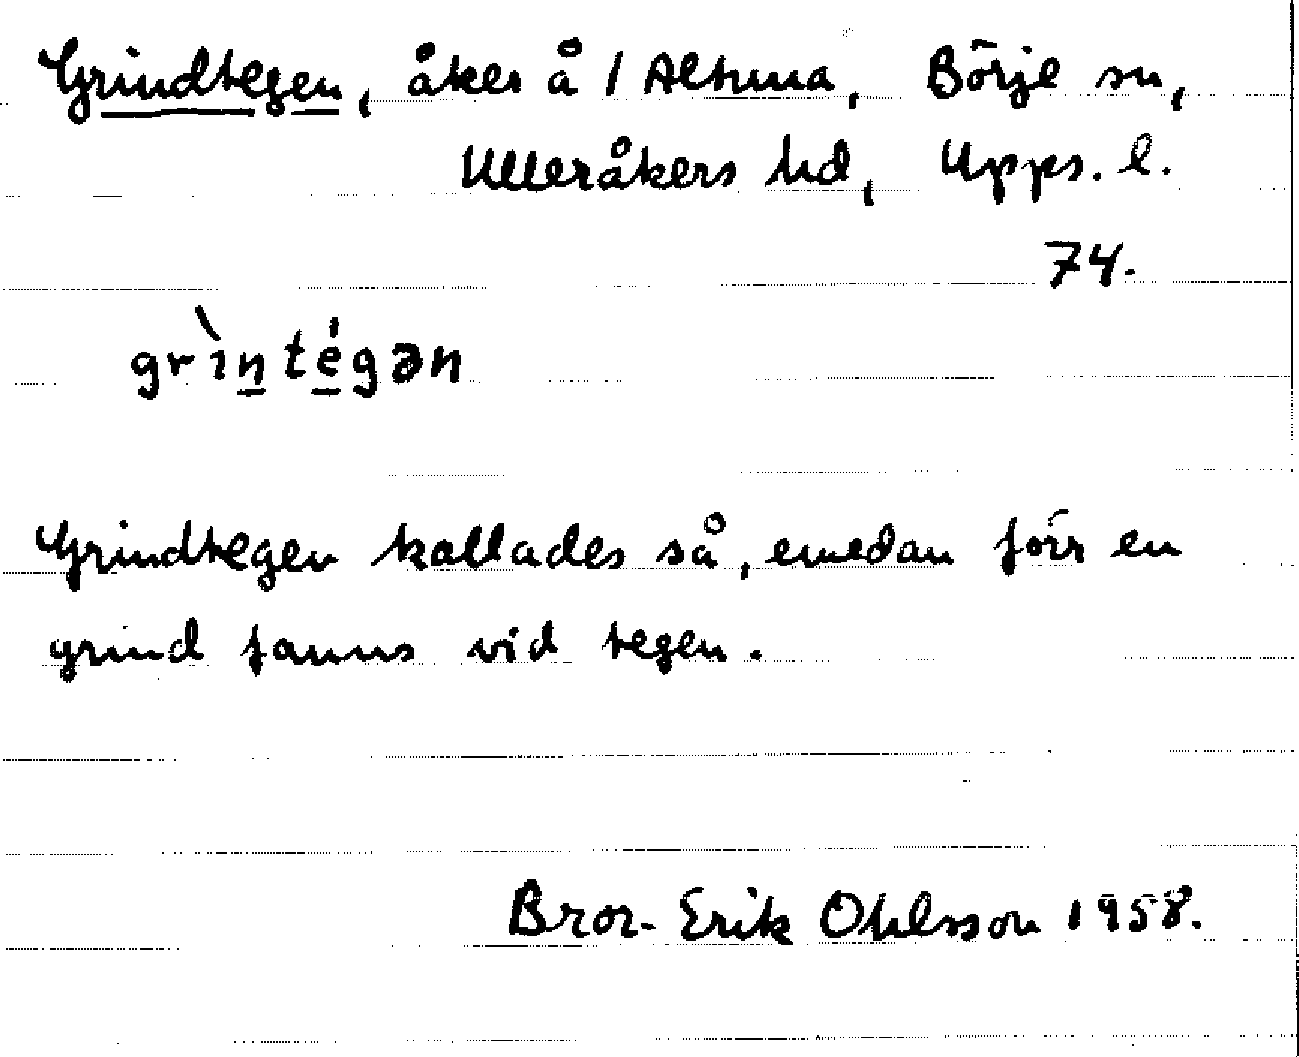 Grindtegen, åker å 1 Altuna, Börje sn,
Ulleråkers hd, Upps. l.
74.
grìn̠té̠gən
Grindtegen kallades så, emedan förr en
grind fanns vid tegen.
Bror-Erik Ohlsson 1958.